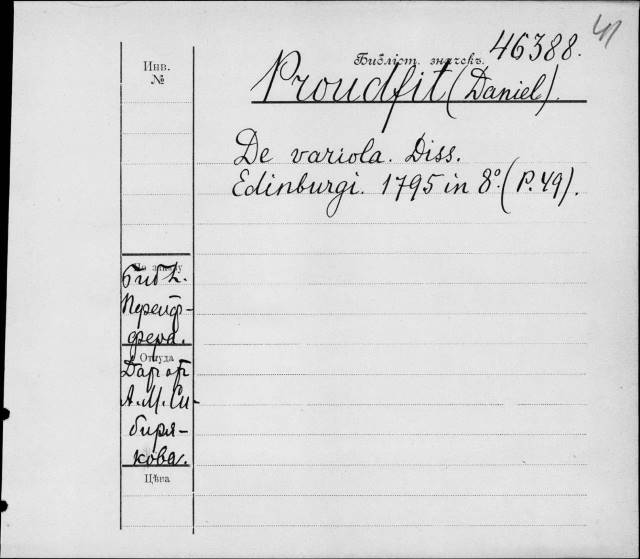 41
46388.
Библіот. значекъ.
Инв.
№
Proudfit (Daniel).
De variola. Diss.
Edinburgi. 1795 in 8º. (P. 49).
По заказу
Библ.
Перейф-
фера.
Откуда
Дар от
А. М. Си-
биря-
кова.
Цѣна